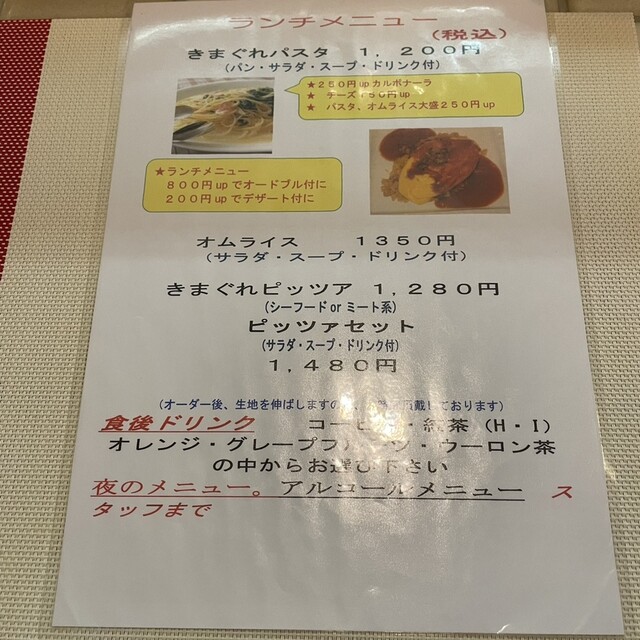 ランチメニュー
(税込)
きまぐれパスタ １，２００円
(パン・サラダ・スープ・ドリンク付)
★２５０円upカルボナーラ
★ チーズ150円up
★ パスタ、オムライス大盛２５０円up
★ランチメニュー
８００円upでオードブル付に
２００円upでデザート付に
オムライス １３５０円
(サラダ・スープ・ドリンク付)
きまぐれピッツア １,２８０円
(シーフード or ミート系)
ピッツァセット
(サラダ・スープ・ドリンク付)
１,４８０円
(オーダー後、生地を伸ばしますの 戴しております)
食後ドリンク コーヒー・紅茶（H・I）
オレンジ・グレープフルーツ・ウーロン茶
の中からお選び下さい
夜のメニュー。アルコールメニュー ス
タッフまで